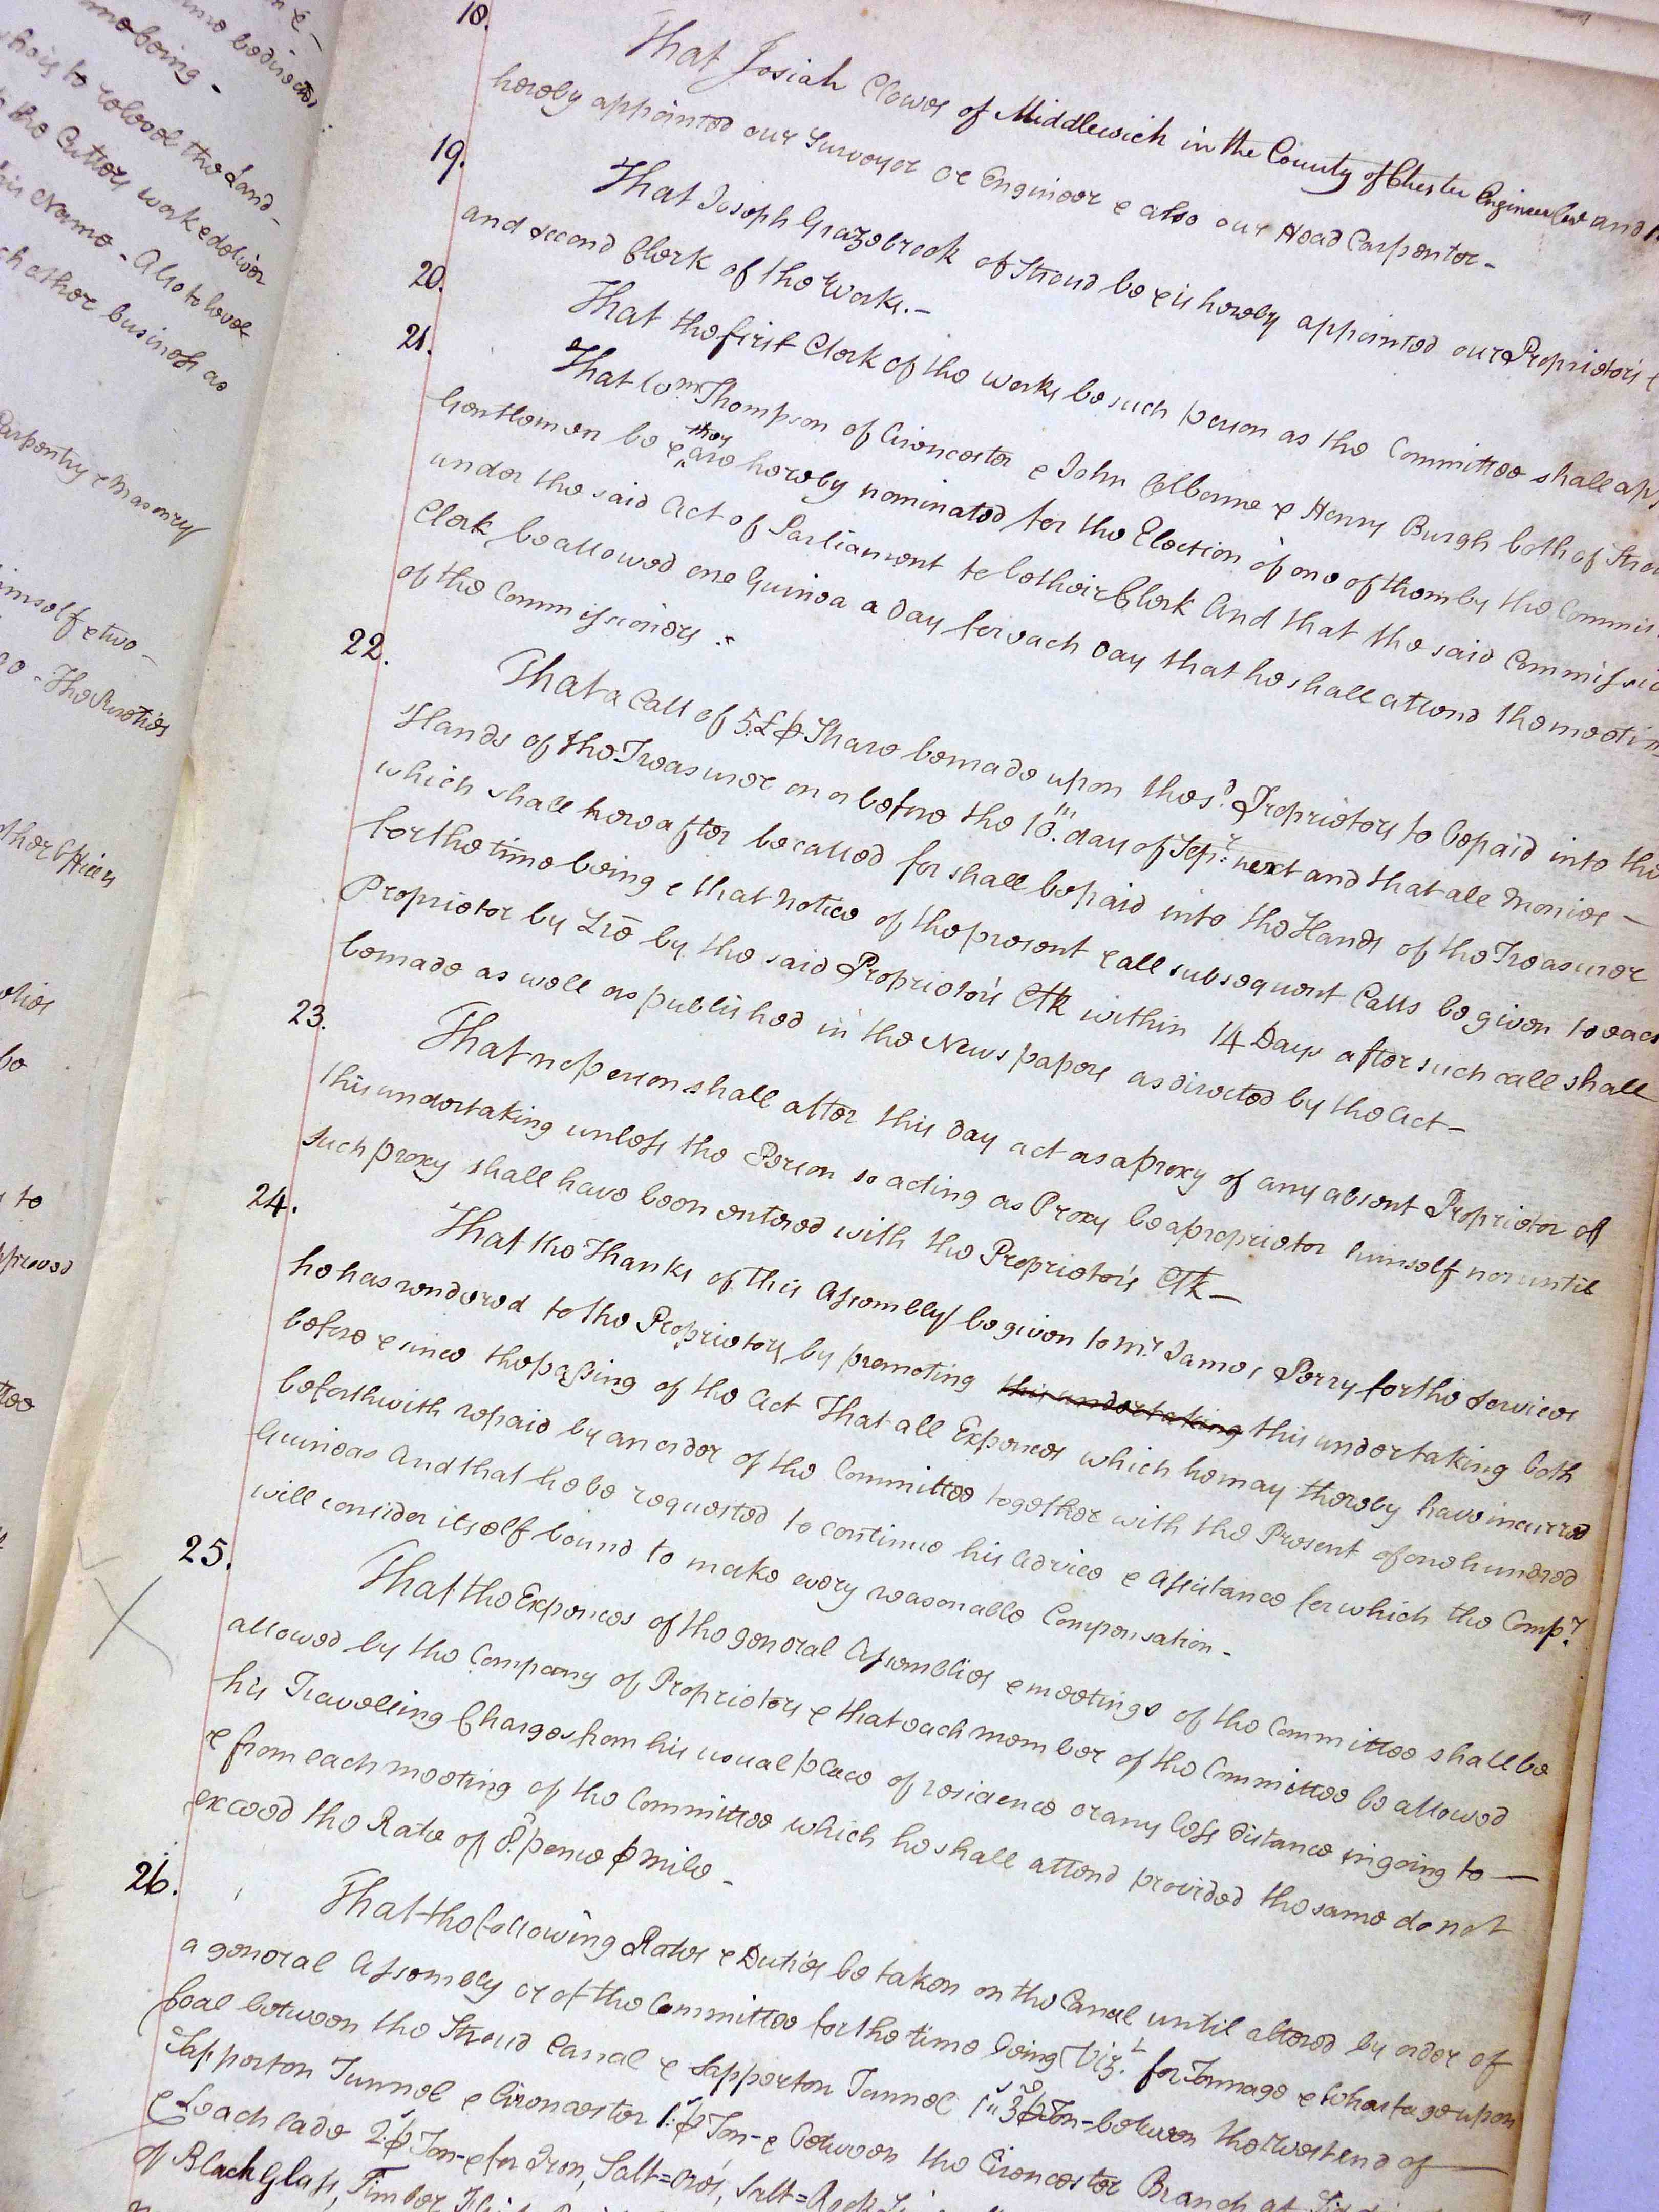 n &
ime bodirected
mobeing -
whois to colocol the Land-
to the Cutters work & deliver
his Name - Also to book
such other business as
Carpentry & Masonry
himself & two -
The Rosties
other Officers
to
approved
18.
That Josiah Clowes of Middlewich in the County of Chester Engineer be and
hereby appointed our Surveyor or Engineer & also our Head Carpenter -
19.
That Joseph Grazebrook of Stroud be & is hereby appointed our Proprietors
and second Clerk of the Works. -
20.
That the first Clerk of the works be such person as the Committee shall
21.
That Wm. Thompson of Cirencester & John Colborne & Henry Burgh both of
Gentlemen be & they are hereby nominated for the Election of one of them by the
under the said Act of Parliament to be their Clerk And that the said
Clerk be allowed one Guinea a Day for each Day that he shall attend the
of the Commissioners -
22.
That a Call of 5.£ ⅌ Share be made upon the sd. Proprietors to be paid into the
Hands of the Treasurer on or before the 10th. day of Sepr. next and that all Monies -
which shall hereafter be called for shall be paid into the Hands of the Treasurer
for the time being & that Notice of the present & all subsequent Calls be given to
Proprietor by Lre by the said Proprietors Clk within 14 Days after such call shall
be made as well as published in the News papers as directed by the Act -
23.
That no person shall after this day act as a proxy of any absent Proprietor of
this undertaking unless the Person so acting as Proxy be a proprietor himself nor until
such proxy shall have been entered with the Proprietor's Clk -
24.
That the Thanks of this Assembly be given to Mr. James Perry for the Services
he has rendered to the Proprietors by promoting this undertaking this undertaking both
before & since the passing of the Act That all Expences which he may thereby have incurred
be forthwith repaid by an order of the Committee together with the Present of one hundred
Guineas And that he be requested to continue his Advice & Assistance for which the Compy.
will consider itself bound to make every reasonable Compensation -
25.
That the Expences of the general Assemblies & meetings of the Committee shall be
allowed by the Company of Proprietors & that each member of the Committee be allowed
his Travelling Charges from his usual place of residence or any less distance in going to -
& from each meeting of the Committee which he shall attend provided the same do not
exceed the Rate of 8. pence ⅌ Mile -
26.
That the following Rates & Duties be taken on the Canal until altered by order of
a general Assembly or of the Committee for the time being Vizt. for Tonnage & Wharfage upon
Coal between the Stroud Canal & Sapperton Tunnel 1s"3d ⅌ Ton - between the West end of
Sapperton Tunnel & Cirencester 1s. ⅌ Ton - & between the Cirencester Branch at
& Leachlade 2s. ⅌ Ton - & for Iron, Salt=
of Black Glass, Timber